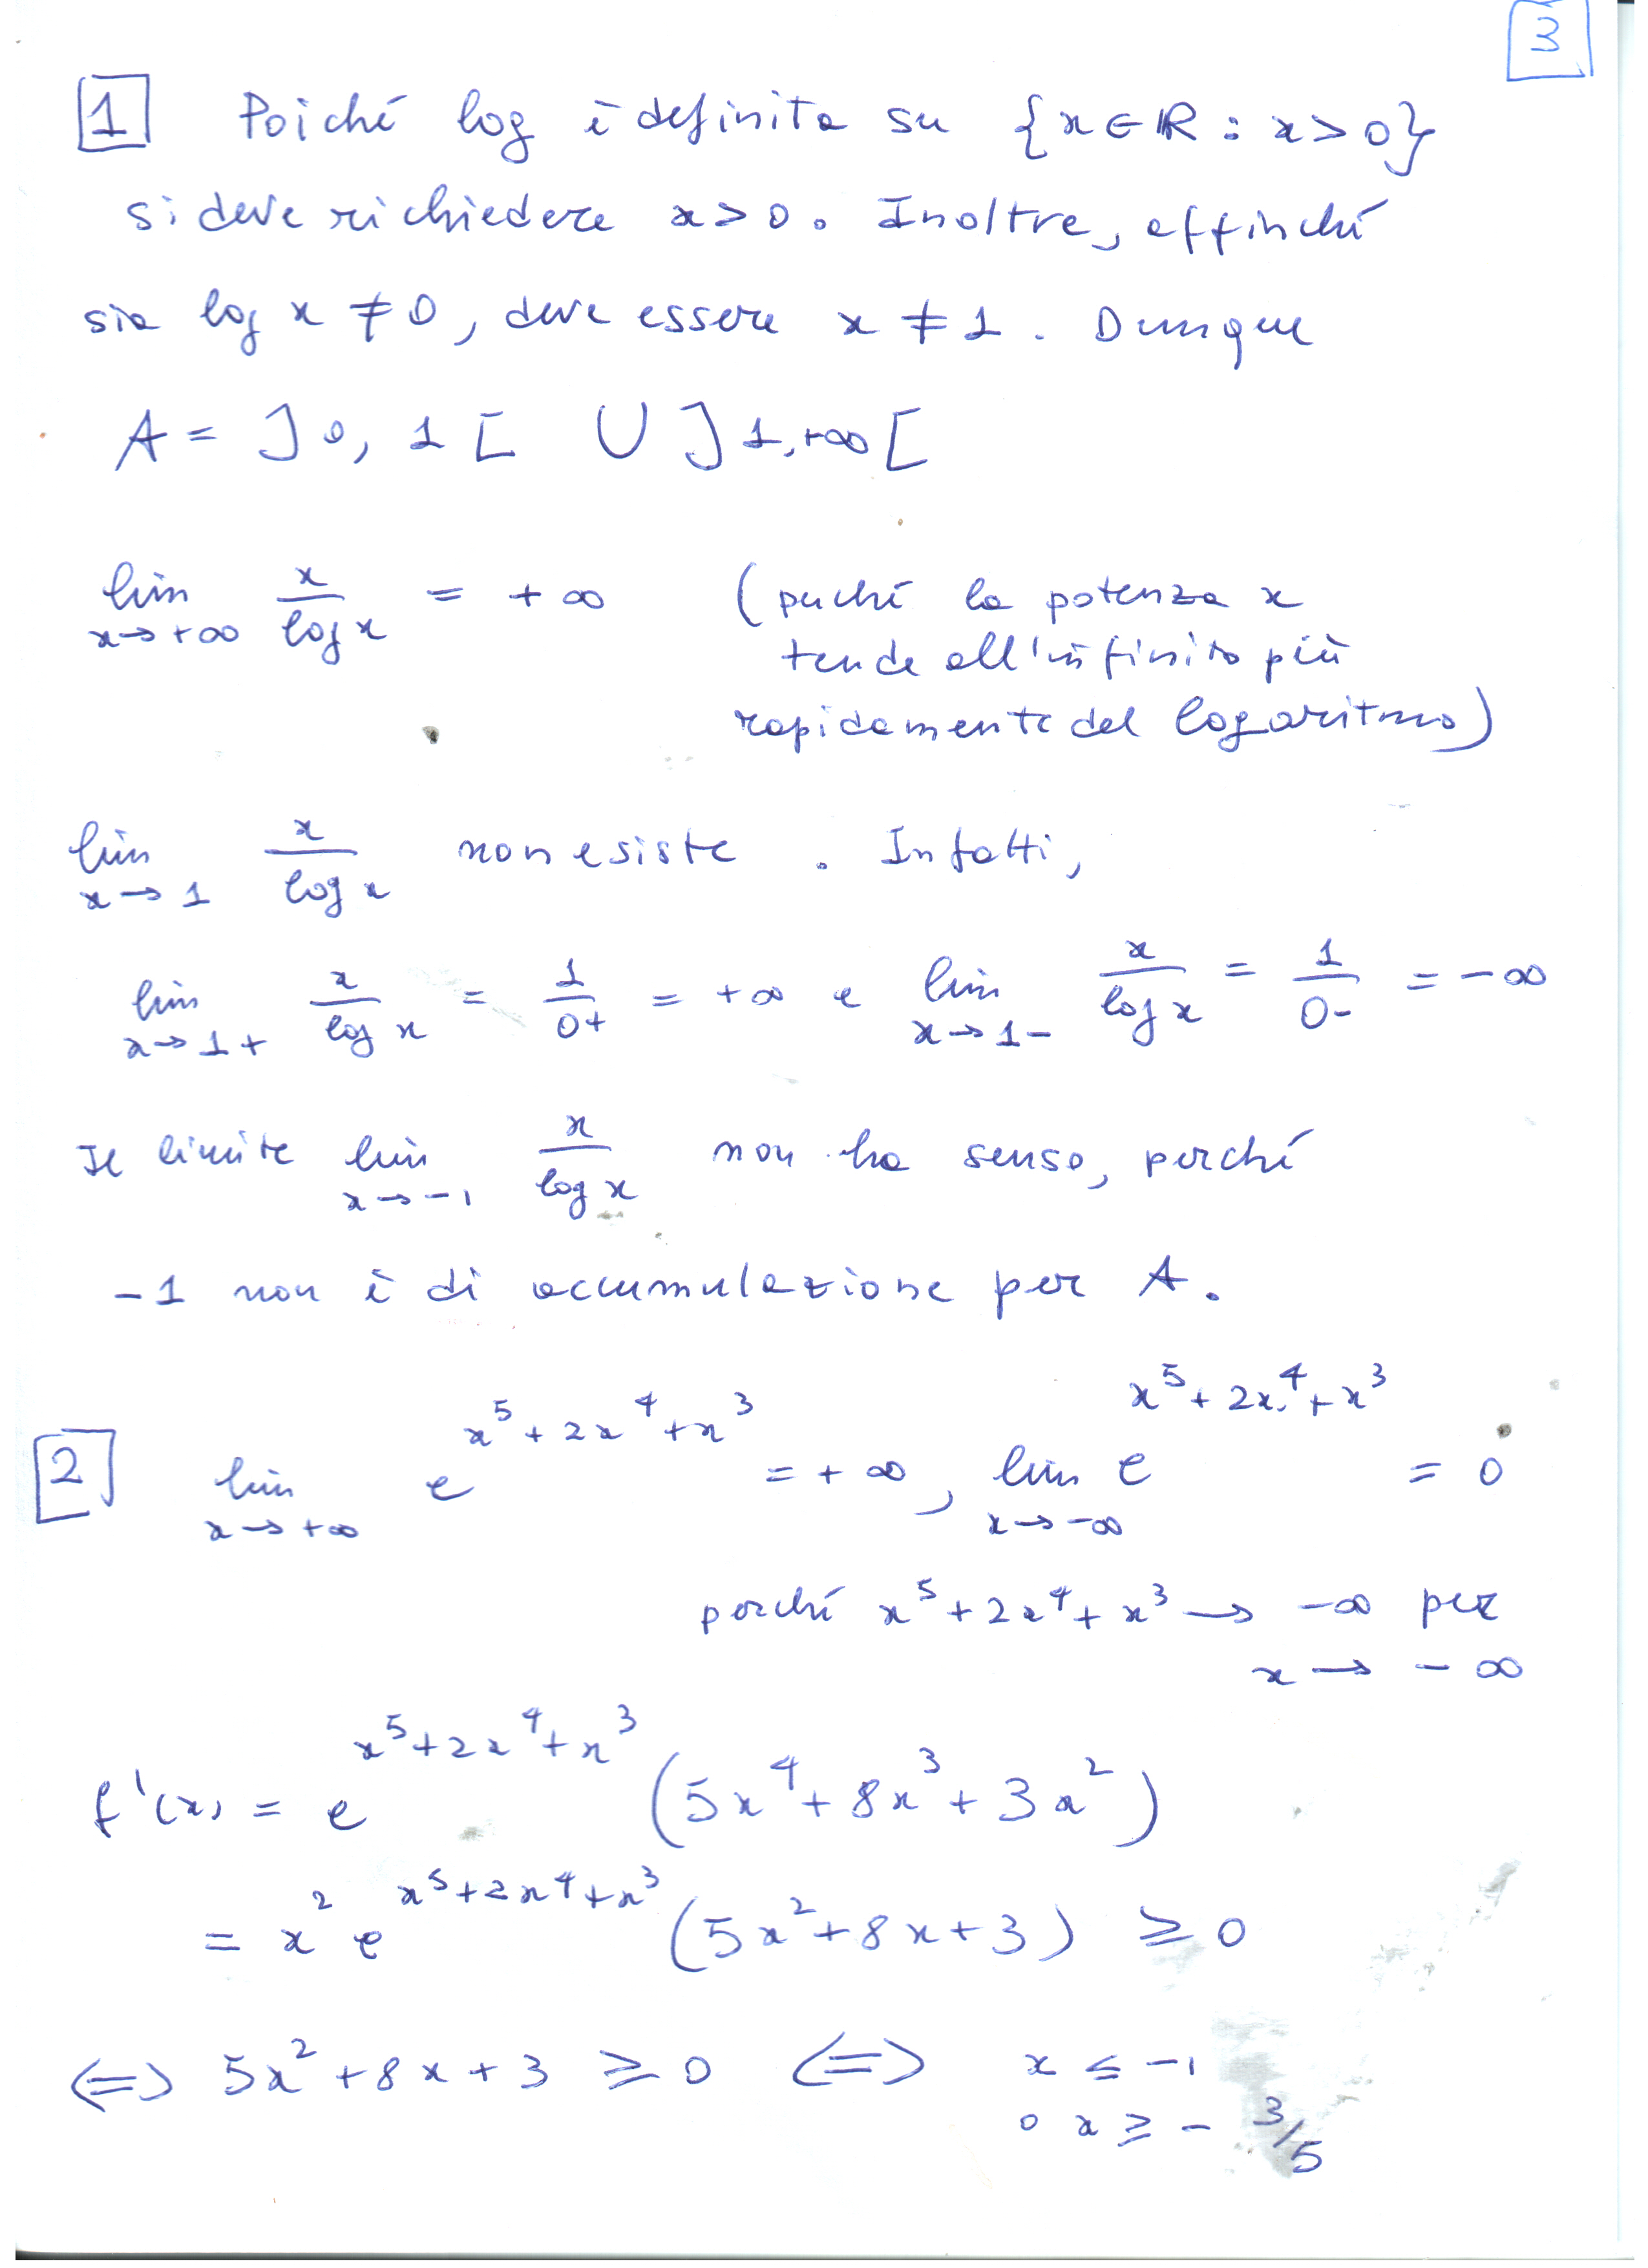 3
1 Poiché log è definita su {x ∈ ℝ : x > 0}
si deve richiedere x > 0. Inoltre, affinché
sia log x ≠ 0, deve essere x ≠ 1. Dunque
A = ]0, 1[ ∪ ]1, +∞[
lim x→+∞ x/log x = +∞ (perché la potenza x
tende all'infinito più
rapidamente del logaritmo)
lim x→1 x/log x non esiste. Infatti,
lim x→1+ x/log x = 1/0+ = +∞ e lim x→1− x/log x = 1/0− = −∞
Il limite lim x→−1 x/log x non ha senso, perché
−1 non è di accumulazione per A.
2 lim x→+∞ e^(x^5+2x^4+x^3) = +∞, lim x→−∞ e^(x^5+2x^4+x^3) = 0
perché x^5+2x^4+x^3 → −∞ per
x → −∞
f'(x) = e^(x^5+2x^4+x^3) (5x^4+8x^3+3x^2)
= x^2 e^(x^5+2x^4+x^3) (5x^2+8x+3) ≥ 0
⟺ 5x^2+8x+3 ≥ 0 ⟺ x ≤ −1
o x ≥ −3/5